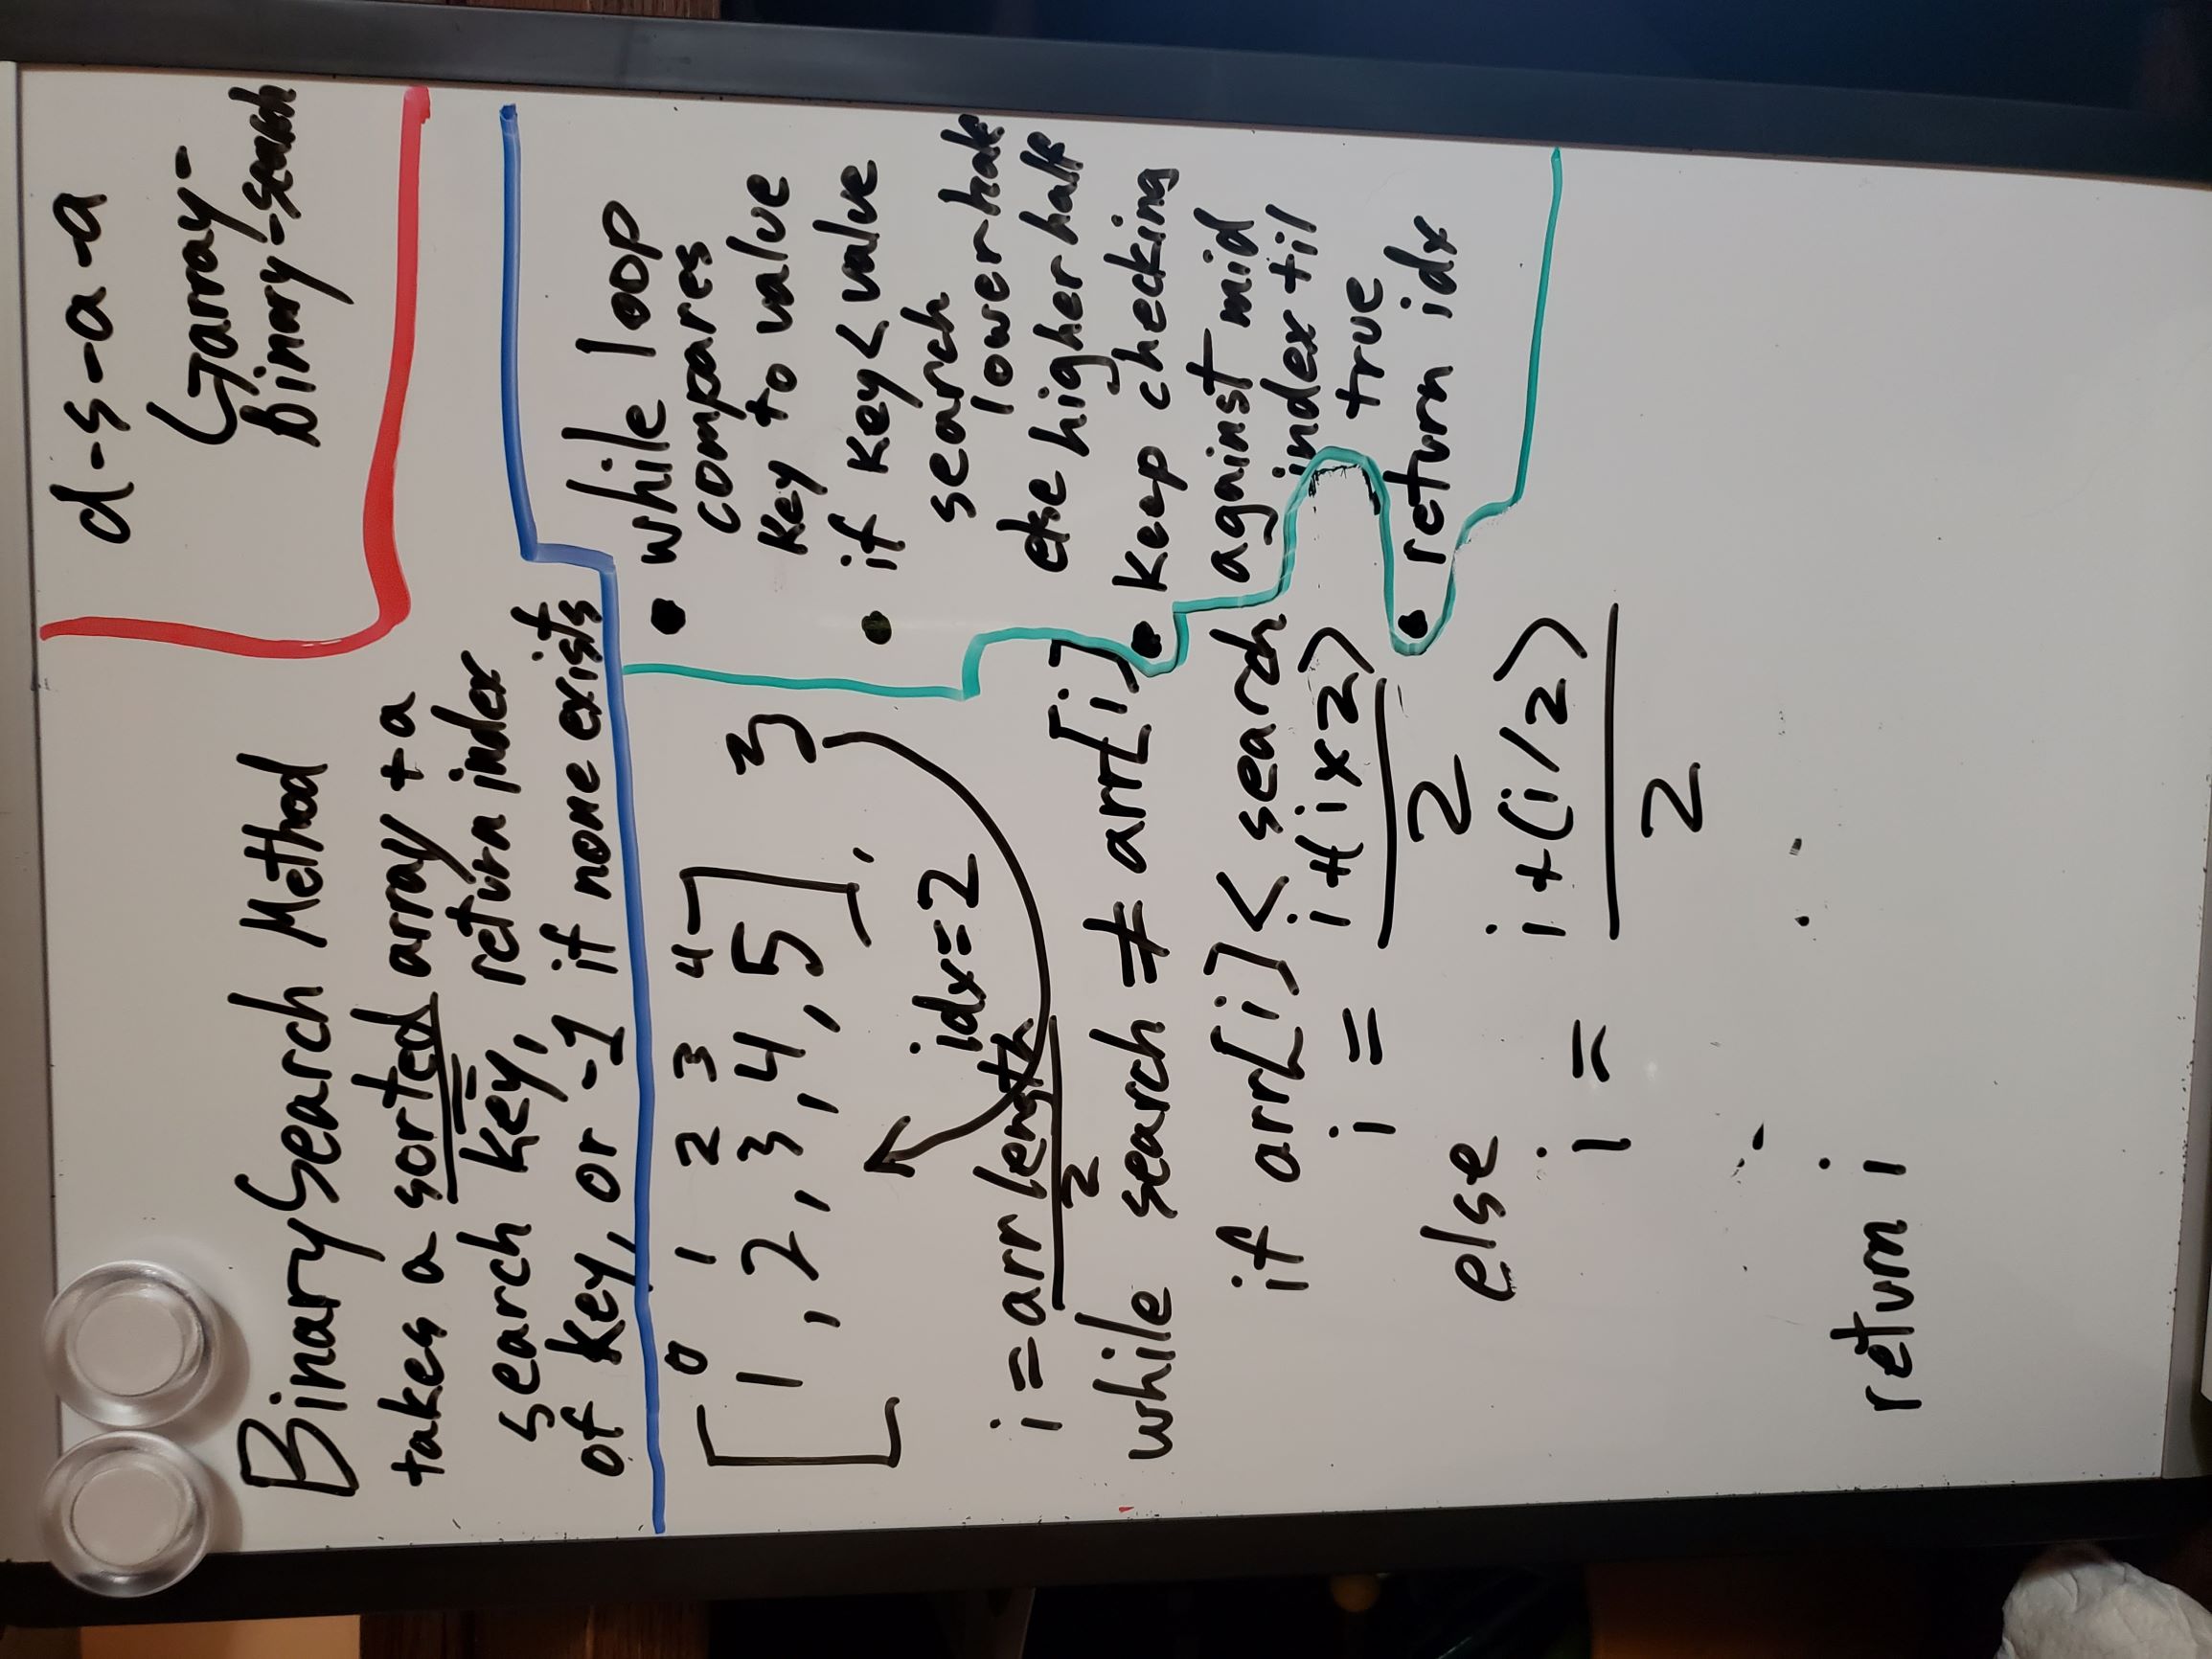 d-s-a-a
↳array-
binary-search
BinarySearch Method
takes a sorted array + a
search key, return index
of key, or -1 if none exists
0 1 2 3 4
[1, 2, 3, 4, 5], 3
idx=2
i = arr length
2
while search ≠ arr[i]
if arr[i] < search
i = i+(i×2)
2
else
i = i+(i/2)
2
return i
• while loop
compares
key to value
• if key < value
search
lower half
else higher half
• keep checking
against mid
index til
true
• return idx